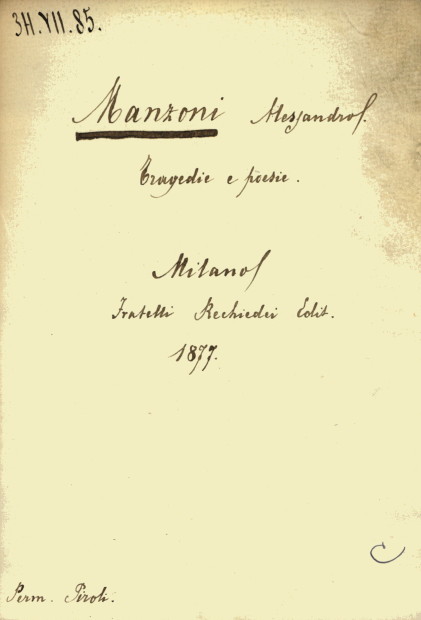 3H.VII.85.
Manzoni Alessandro.
Tragedie e poesie.
Milano
Fratelli Rechiedei Edit.
1877.
Perm. Piroli.
C